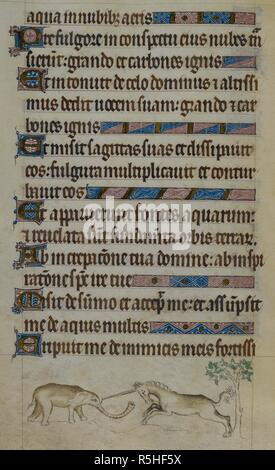 aqua in nubibꝫ aeris
Pre fulgore in conspectu eius nubes tñ
sierunt: grando et carbones ignis
Et intonuit de celo dominus ⁊ altissi
mus dedit uocem suam: grando ⁊ car
bones ignis
Et misit sagittas suas et dissipauit
eos: fulgura multiplicauit et contur
bauit eos
Et apparuerunt fontes aquarum:
⁊ reuelata sunt fundamenta orbis terrar̃
Ab increpacione tua domine: ab inspi
racione sp̃c ire tue
Misit de sũmo et accep̃ me: et assũpsit
me de aquis multis
Eripuit me de inimicis meis fortissi
alamy
Image ID: R5HF5X
www.alamy.com